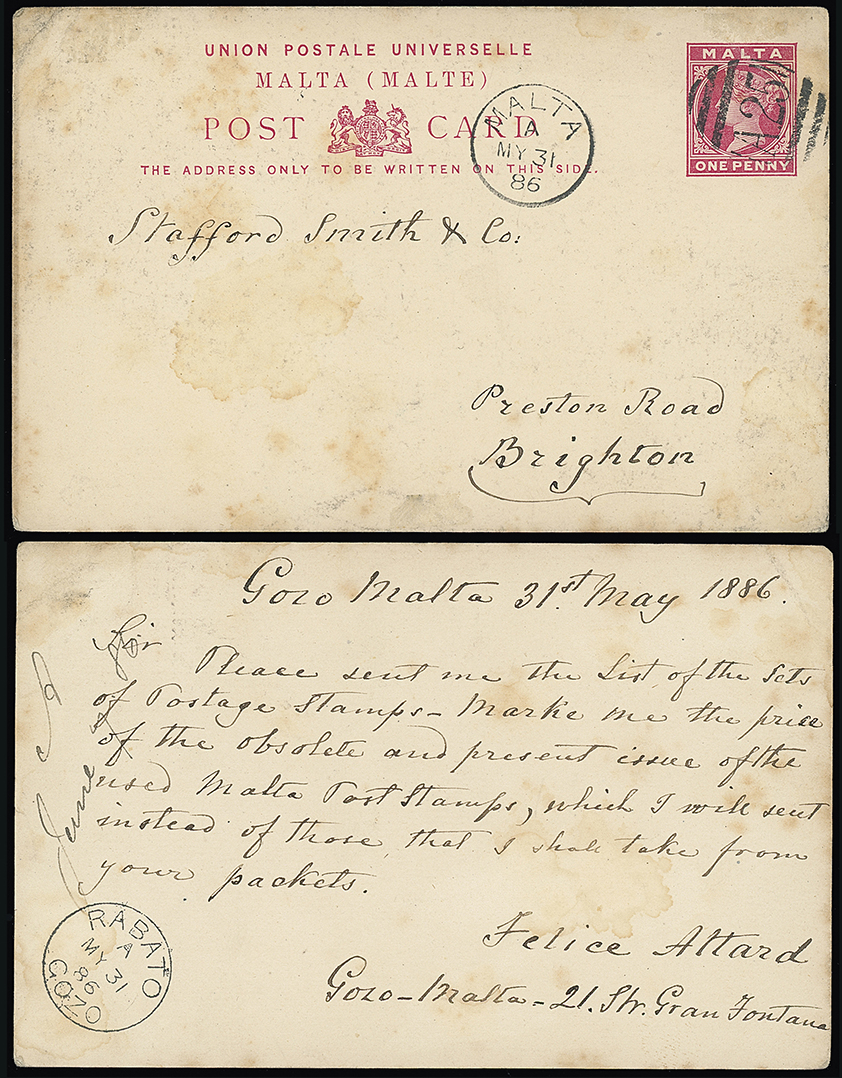 UNION POSTALE UNIVERSELLE
MALTA (MALTE)
POST CARD
THE ADDRESS ONLY TO BE WRITTEN ON THIS SIDE.
MALTA
A
MY 31
86
MALTA
A25
ONE PENNY
Stafford Smith & Co:
Preston Road
Brighton
Gozo Malta 31st. May 1886.
Sir
Please sent me the List of the Sets
of Postage Stamps - Marke me the price
of the obsolete and present issue of the
used Malta Post Stamps, which I will sent
instead of those that I shall take from
your packets.
Felice Attard
Gozo - Malta - 21. Str. Gran Fontana
June
RABATO
A
MY 31
86
GOZO